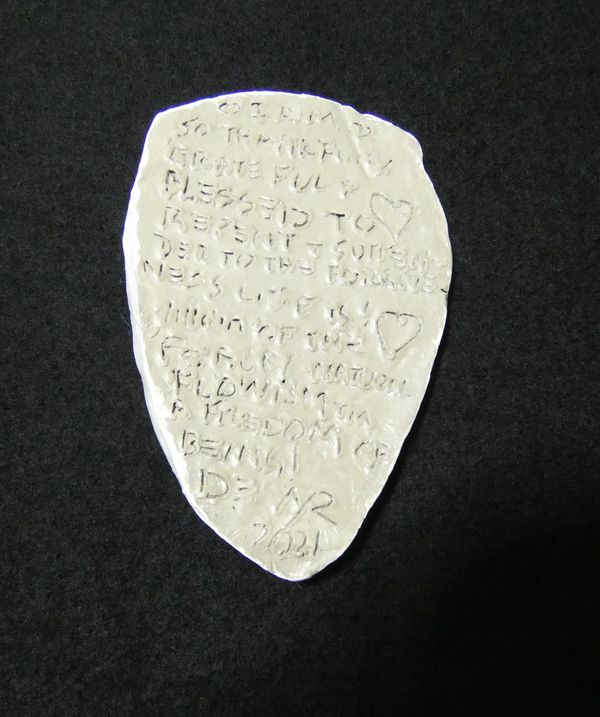 I AM
SO THANKFUL &
GRATEFUL &
BLESSED TO
REPENT & SURREN
DER TO THE FORGIVE
NESS LIFE IS!
OF THE
NATURAL
FLOW
FREEDOM OF
BEING!
NR
2021